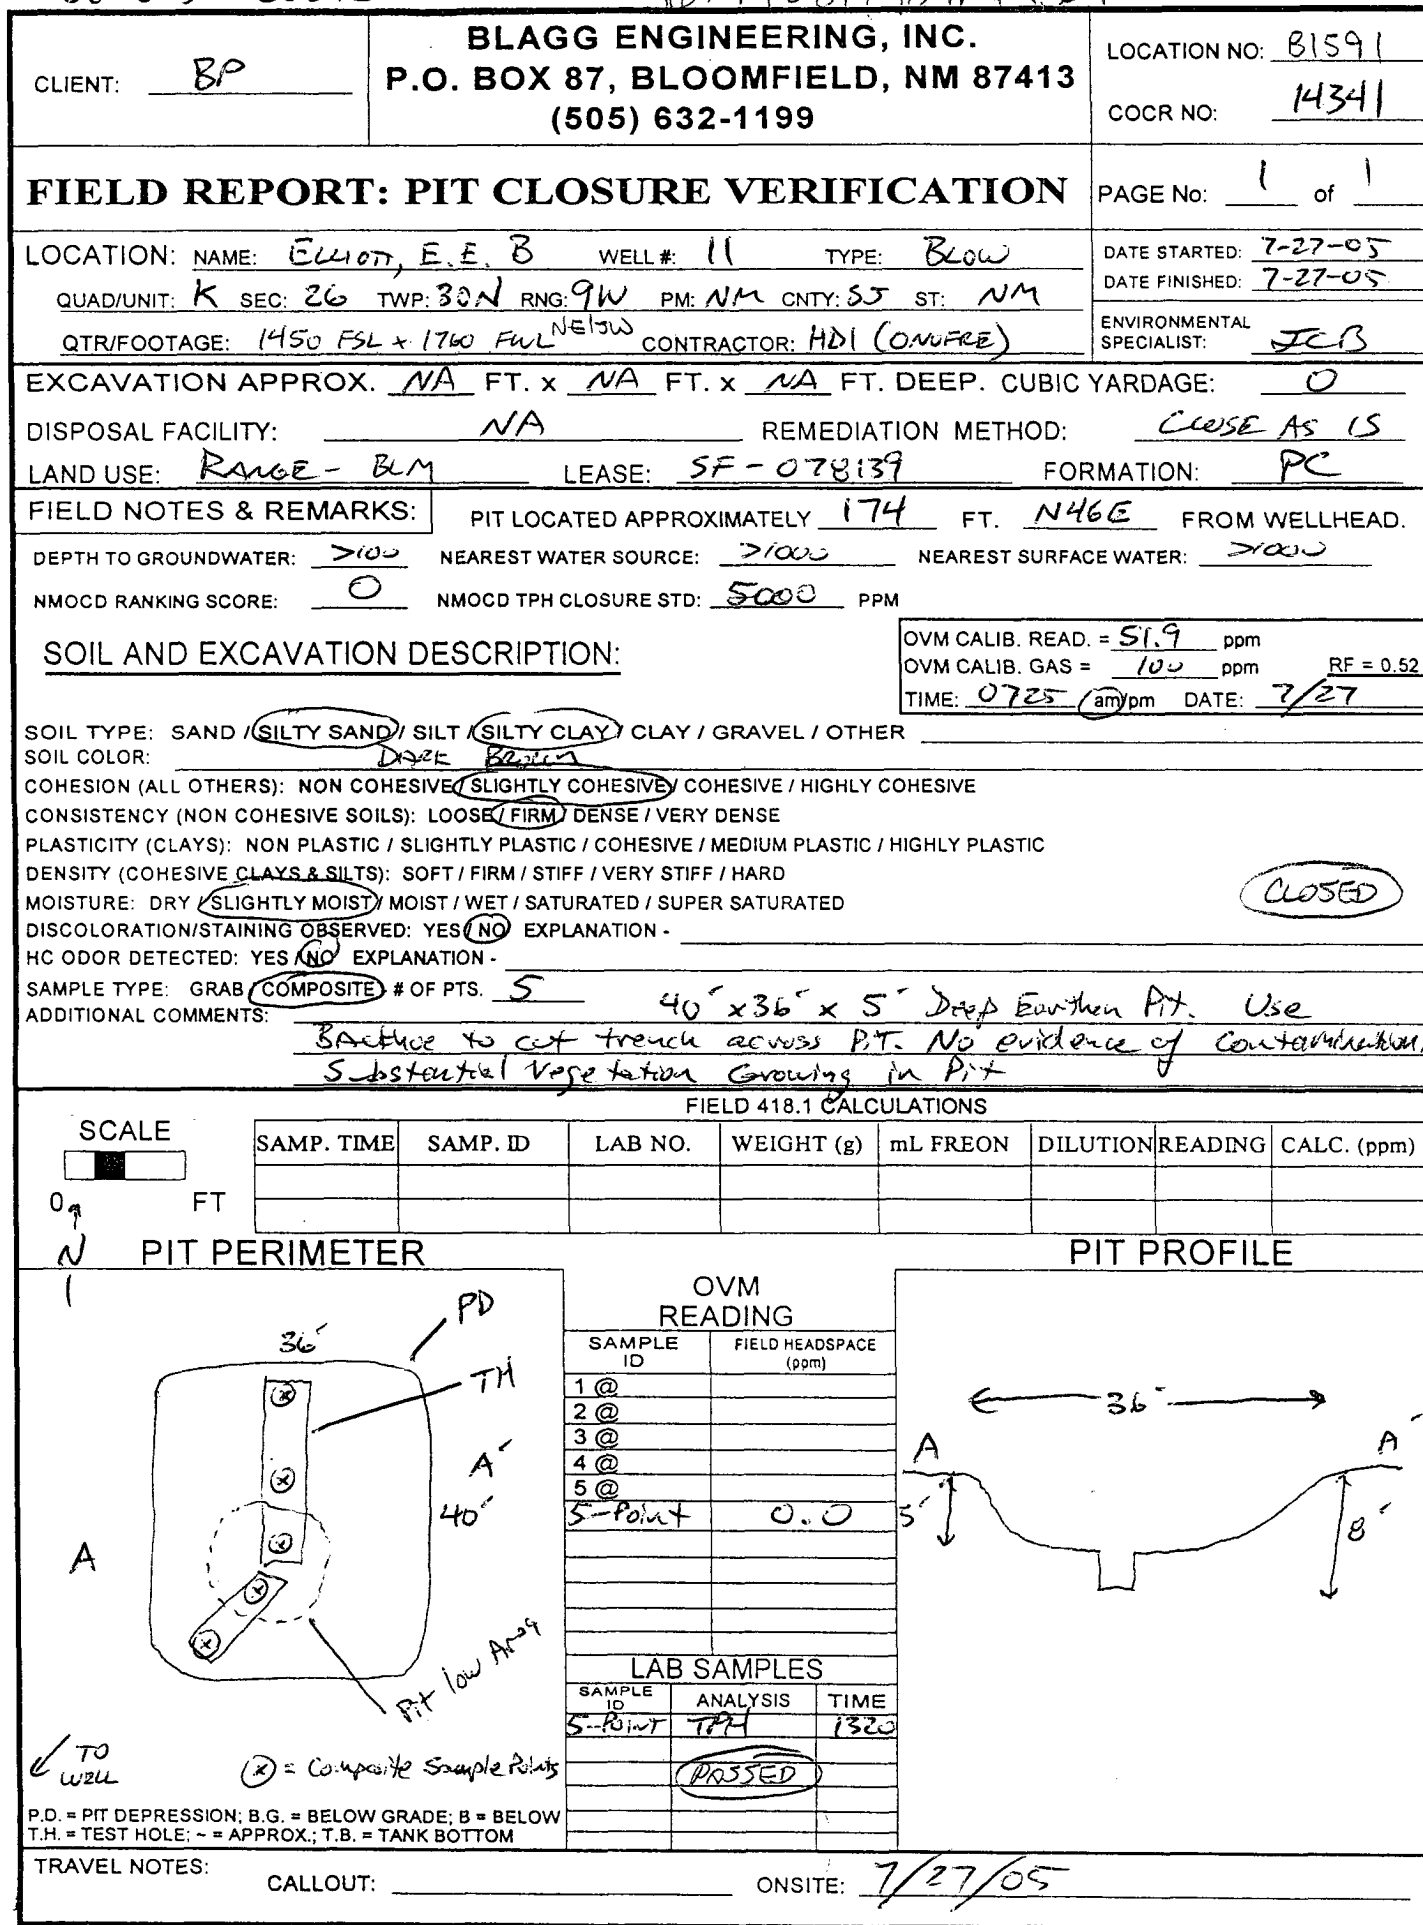 BLAGG ENGINEERING, INC.
P.O. BOX 87, BLOOMFIELD, NM 87413
(505) 632-1199
CLIENT: BP
LOCATION NO: B1591
COCR NO: 14341
FIELD REPORT: PIT CLOSURE VERIFICATION
PAGE No: 1 of 1
LOCATION: NAME: Elliott, E.E. B WELL #: 11 TYPE: Blow
QUAD/UNIT: K SEC: 26 TWP: 30N RNG: 9W PM: NM CNTY: SJ ST: NM
QTR/FOOTAGE: 1450 FSL x 1760 FWL NE/SW CONTRACTOR: HDI (ONOFRE)
DATE STARTED: 7-27-05
DATE FINISHED: 7-27-05
ENVIRONMENTAL SPECIALIST: JCB
EXCAVATION APPROX. NA FT. x NA FT. x NA FT. DEEP. CUBIC YARDAGE: 0
DISPOSAL FACILITY: NA REMEDIATION METHOD: CLOSE AS IS
LAND USE: RANGE - BLM LEASE: SF-078139 FORMATION: PC
FIELD NOTES & REMARKS: PIT LOCATED APPROXIMATELY 174 FT. N46E FROM WELLHEAD.
DEPTH TO GROUNDWATER: >100 NEAREST WATER SOURCE: >1000 NEAREST SURFACE WATER: >1000
NMOCD RANKING SCORE: 0 NMOCD TPH CLOSURE STD: 5000 PPM
SOIL AND EXCAVATION DESCRIPTION:
OVM CALIB. READ. = 51.9 ppm
OVM CALIB. GAS = 100 ppm RF = 0.52
TIME: 0725 am/pm DATE: 7/27
SOIL TYPE: SAND / SILTY SAND / SILT / SILTY CLAY / CLAY / GRAVEL / OTHER
SOIL COLOR: DARK BROWN
COHESION (ALL OTHERS): NON COHESIVE / SLIGHTLY COHESIVE / COHESIVE / HIGHLY COHESIVE
CONSISTENCY (NON COHESIVE SOILS): LOOSE / FIRM / DENSE / VERY DENSE
PLASTICITY (CLAYS): NON PLASTIC / SLIGHTLY PLASTIC / COHESIVE / MEDIUM PLASTIC / HIGHLY PLASTIC
DENSITY (COHESIVE CLAYS & SILTS): SOFT / FIRM / STIFF / VERY STIFF / HARD
MOISTURE: DRY / SLIGHTLY MOIST / MOIST / WET / SATURATED / SUPER SATURATED
CLOSED
DISCOLORATION/STAINING OBSERVED: YES / NO EXPLANATION -
HC ODOR DETECTED: YES / NO EXPLANATION -
SAMPLE TYPE: GRAB / COMPOSITE # OF PTS. 5
ADDITIONAL COMMENTS: 40' x 36' x 5' Deep Earthen Pit. Use
Backhoe to cut trench across Pit. No evidence of Contamination.
Substantial Vegetation Growing in Pit
FIELD 418.1 CALCULATIONS
SCALE
0 FT
SAMP. TIME SAMP. ID LAB NO. WEIGHT (g) mL FREON DILUTION READING CALC. (ppm)
N
PIT PERIMETER
36'
PD
TH
A'
40'
A
Pit low Area
TO WELL
(x) = Composite Sample Points
P.D. = PIT DEPRESSION; B.G. = BELOW GRADE; B = BELOW
T.H. = TEST HOLE; ~ = APPROX.; T.B. = TANK BOTTOM
OVM READING
SAMPLE ID FIELD HEADSPACE (ppm)
1 @
2 @
3 @
4 @
5 @
5-Point 0.0
LAB SAMPLES
SAMPLE ID ANALYSIS TIME
5-Point TPH 1320
PASSED
PIT PROFILE
36'
A A'
5' 8'
TRAVEL NOTES: CALLOUT: ONSITE: 7/27/05